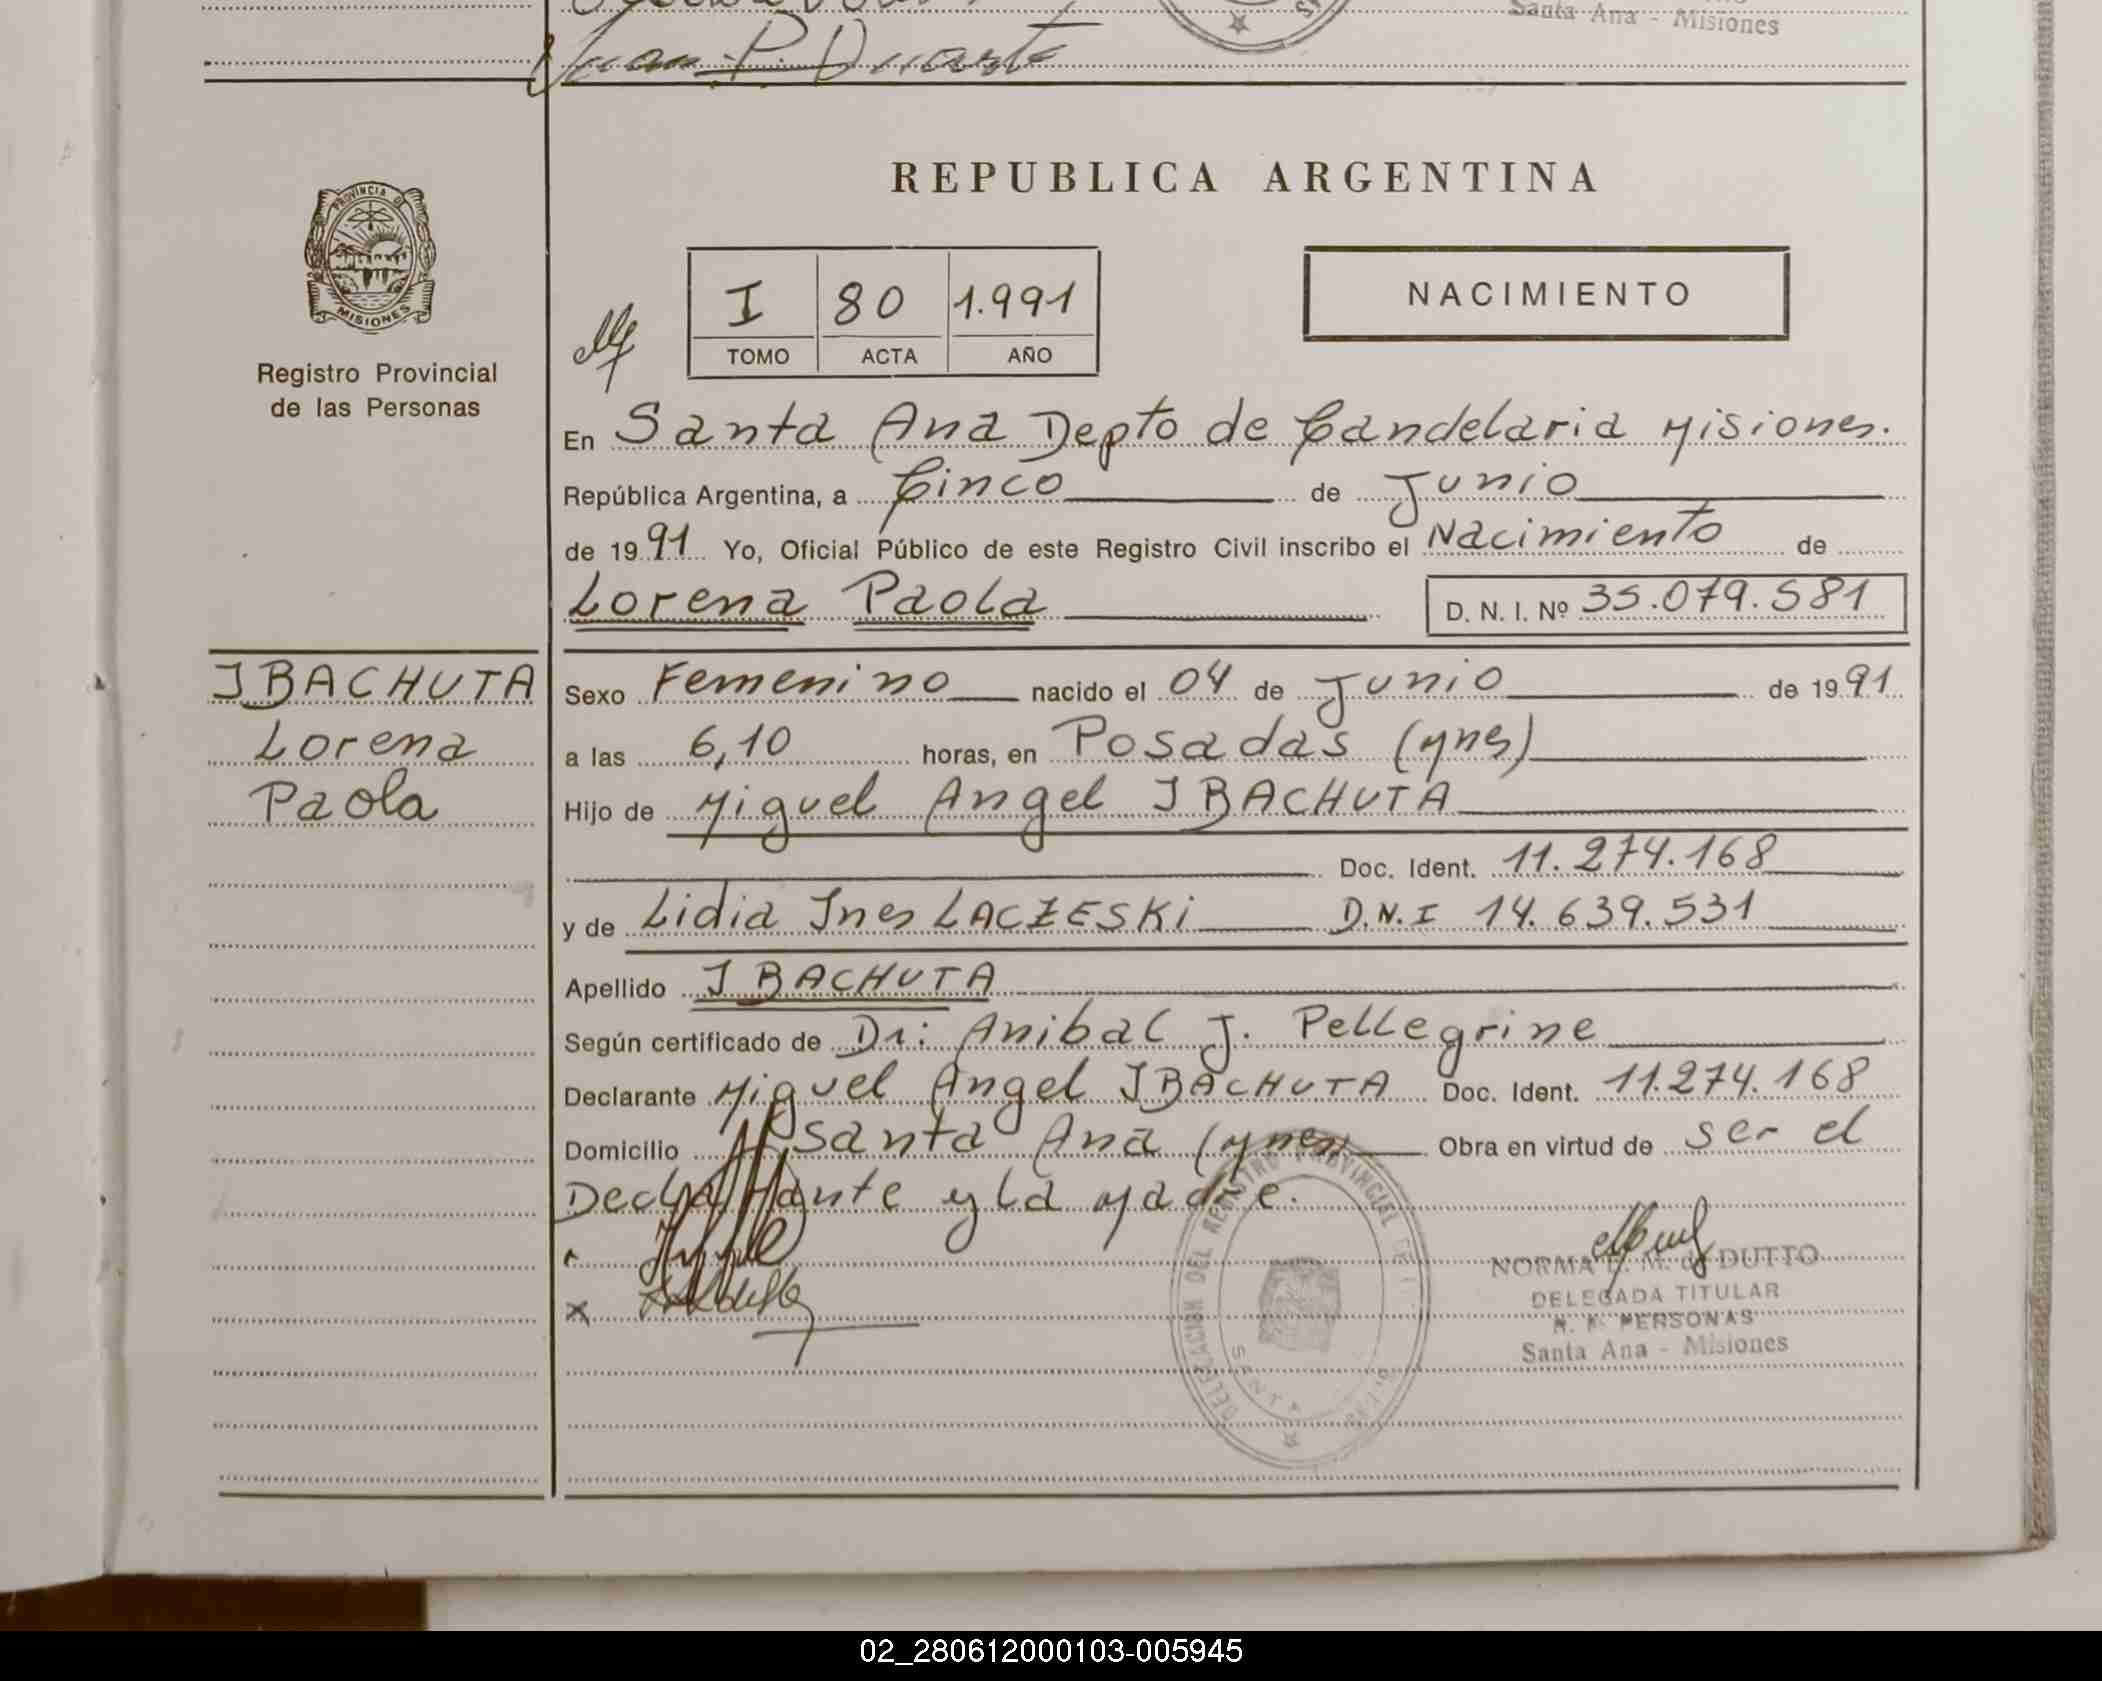 Santa Ana - Misiones
Juan P. Duarte
PROVINCIA DE
MISIONES
Registro Provincial
de las Personas
REPUBLICA ARGENTINA
I 80 1.991
TOMO ACTA AÑO
NACIMIENTO
En Santa Ana Depto de Candelaria Misiones.
República Argentina, a Cinco de Junio
de 1991 Yo, Oficial Público de este Registro Civil inscribo el Nacimiento de
Lorena Paola D. N. I. Nº 35.079.581
IBACHUTA
Lorena
Paola
Sexo Femenino nacido el 04 de Junio de 1991
a las 6,10 horas, en Posadas (Mnes)
Hijo de Miguel Angel IBACHUTA
Doc. Ident. 11.274.168
y de Lidia Ines LACZESKI D.N.I 14.639.531
Apellido IBACHUTA
Según certificado de Dr: Anibal J. Pellegrine
Declarante Miguel Angel IBACHUTA Doc. Ident. 11.274.168
Domicilio Santa Ana (Mnes) Obra en virtud de ser el
Declarante y la Madre.
DELEGACION DEL REGISTRO PROVINCIAL DE
SANTA
NORMA E. M. de DUTTO
DELEGADA TITULAR
R. P. PERSONAS
Santa Ana - Misiones
02_280612000103-005945